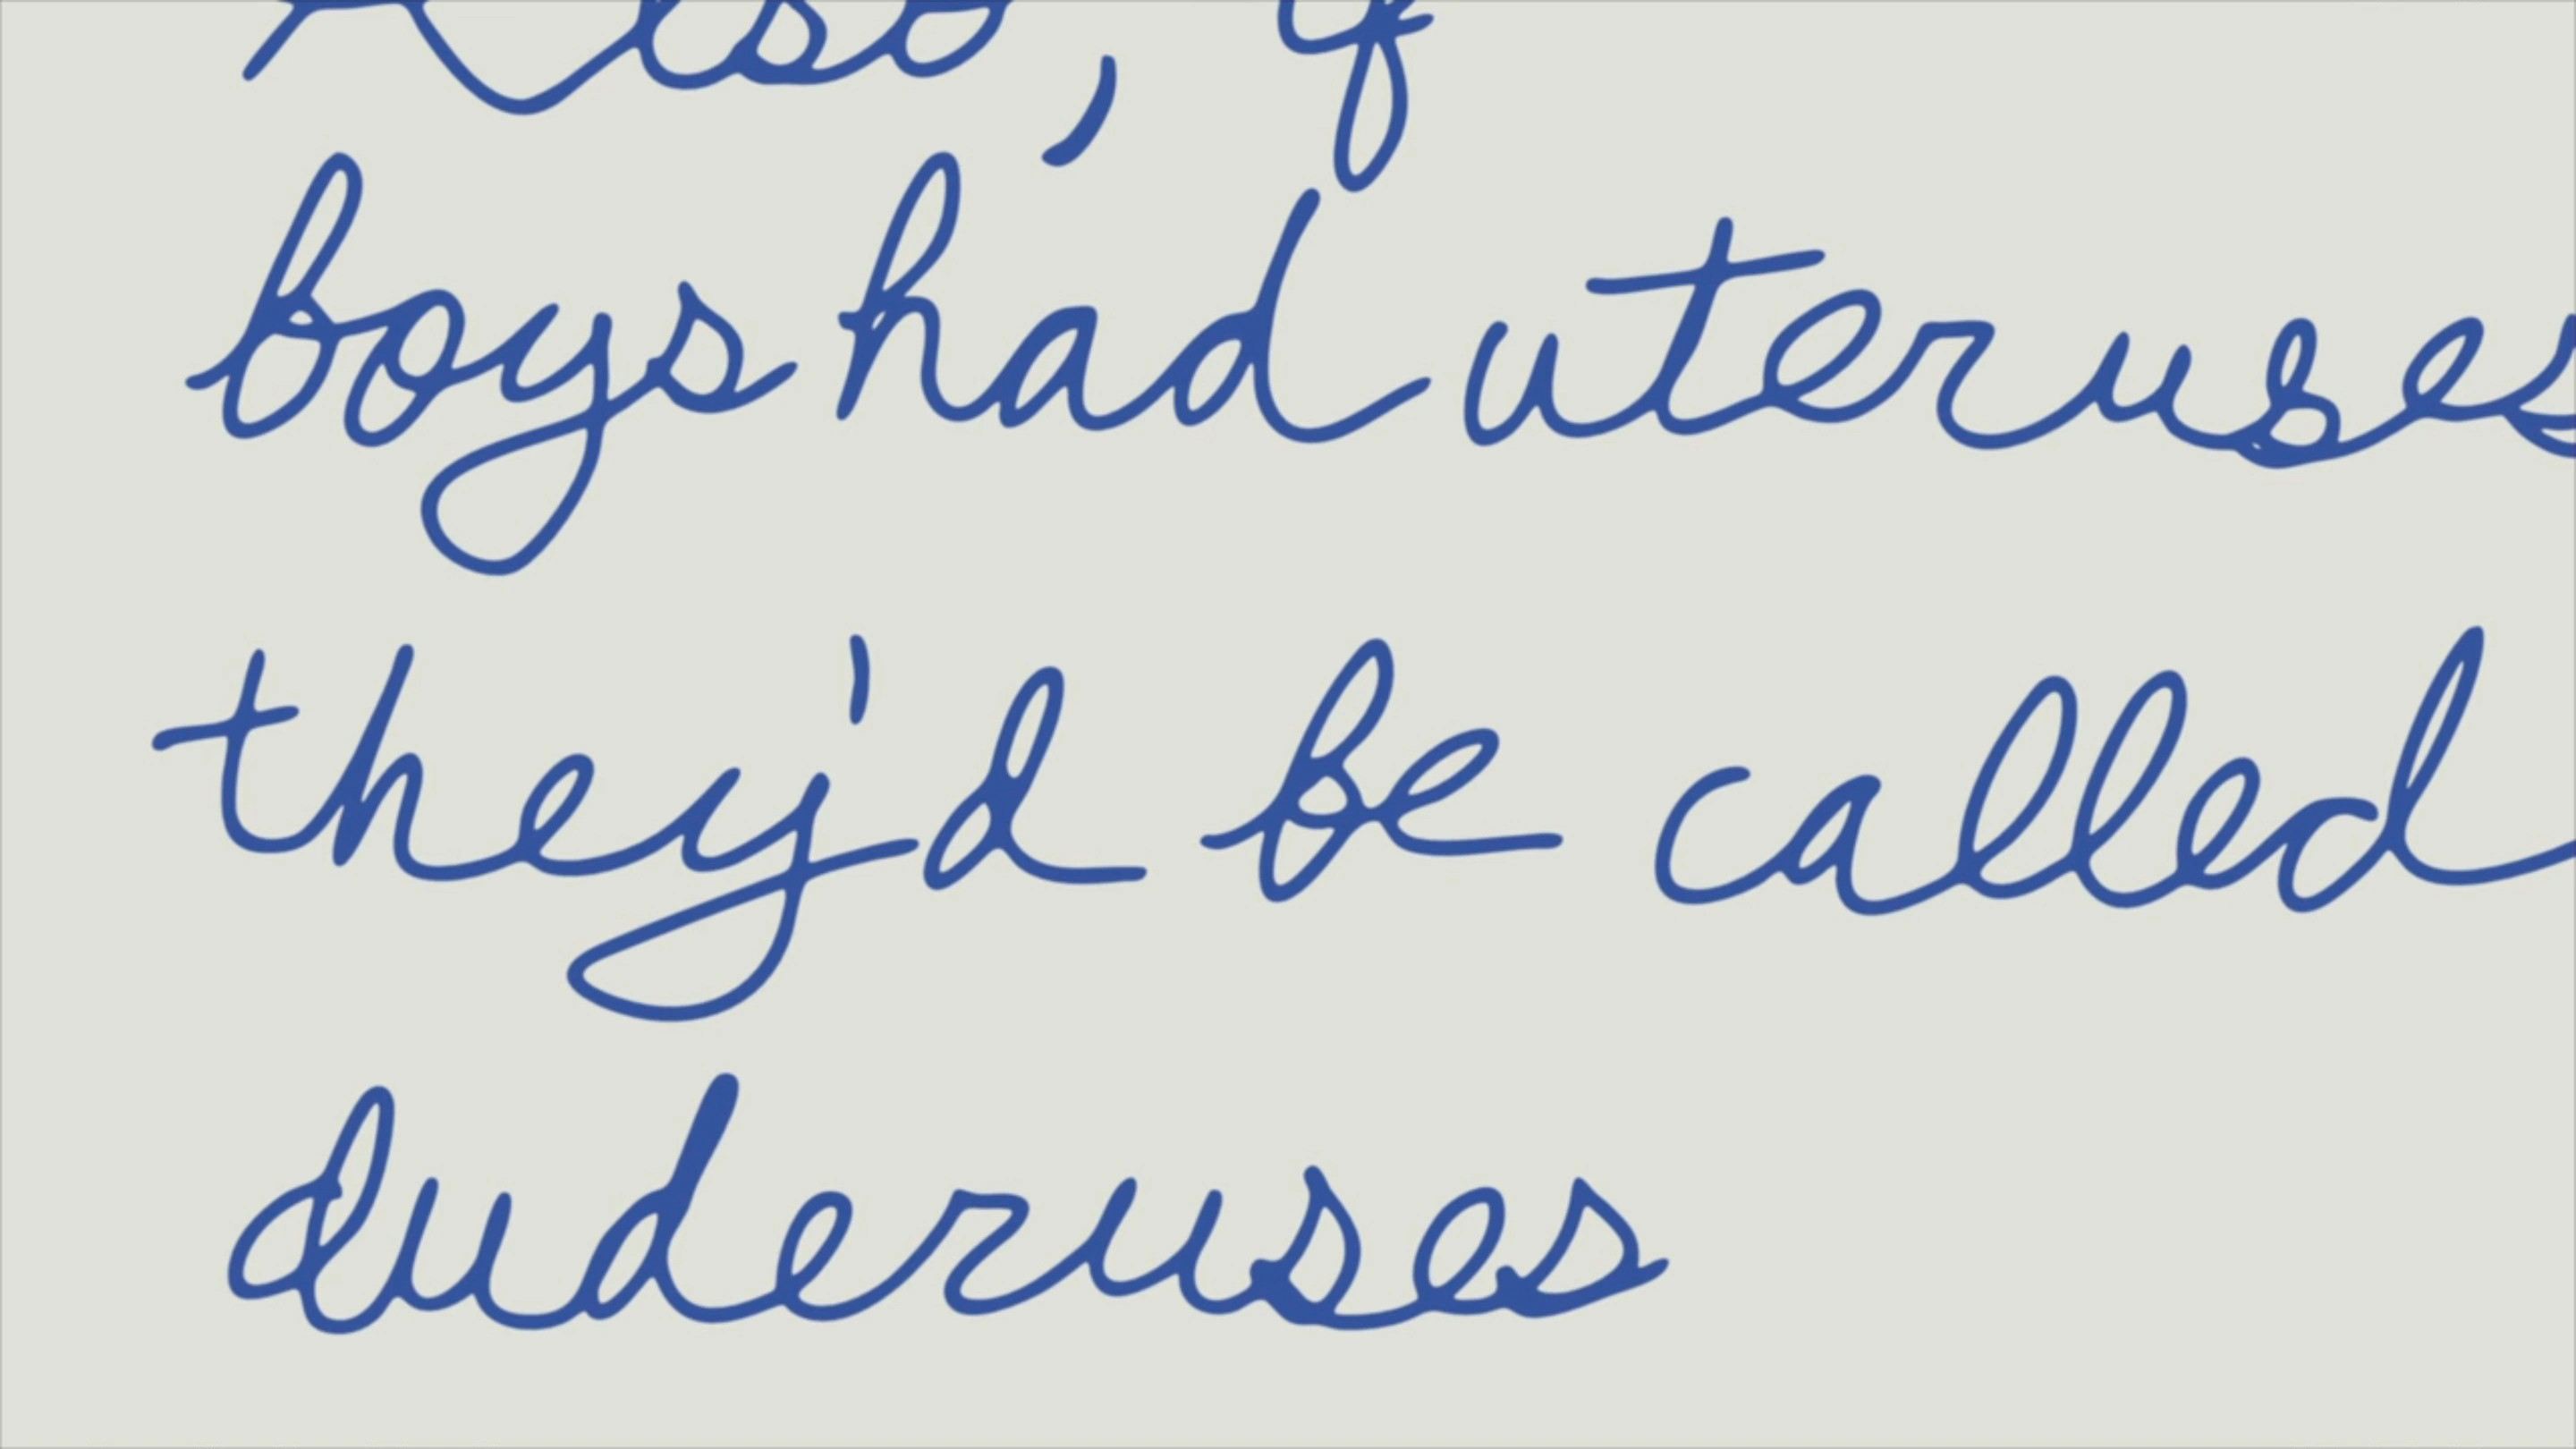 Also, if
boys had uteruses
they'd be called
duderuses